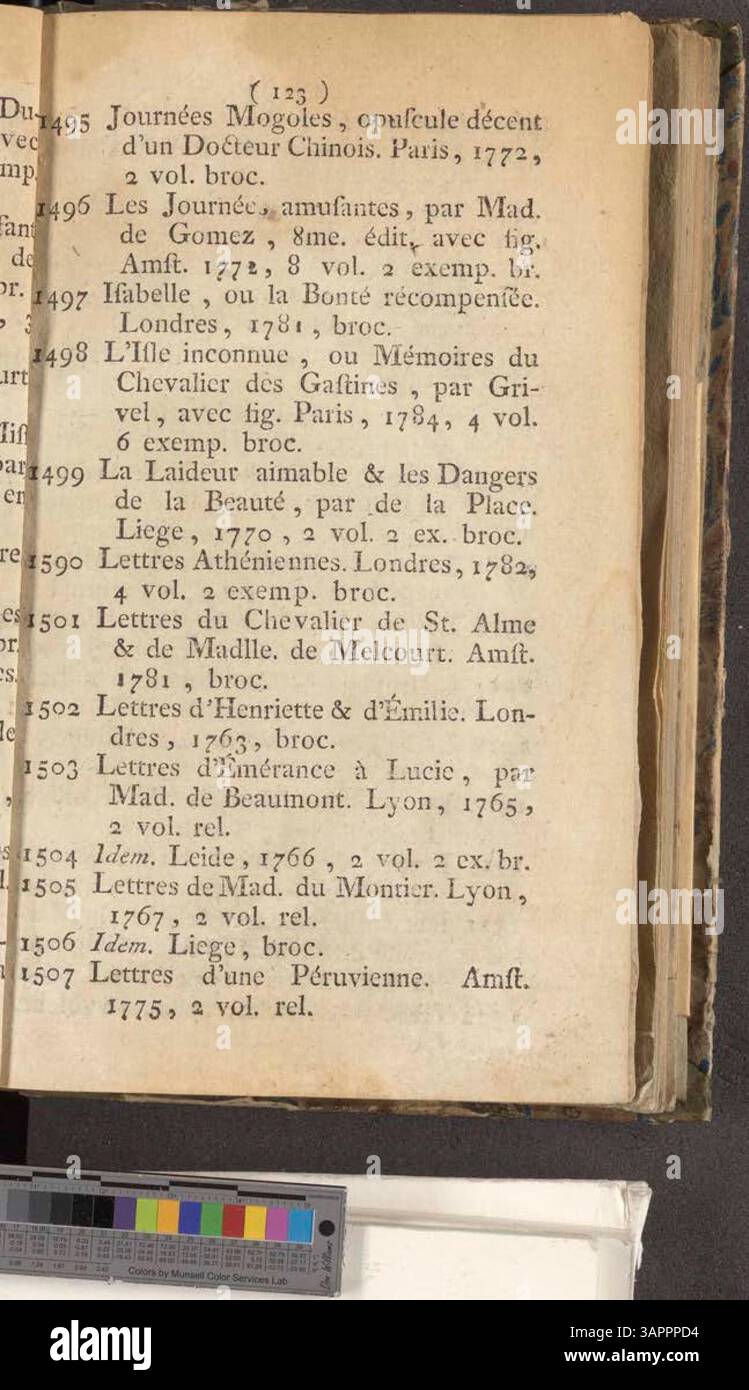 ( 123 )
1495 Journées Mogoles, opuſcule décent
d'un Docteur Chinois. Paris, 1772,
2 vol. broc.
1496 Les Journées amuſantes, par Mad.
de Gomez, 8me. édit. avec fig.
Amſt. 1772, 8 vol. 2 exemp. br.
1497 Iſabelle, ou la Bonté récompenſée.
Londres, 1781, broc.
1498 L'Iſle inconnue, ou Mémoires du
Chevalier des Gaſtines, par Gri-
vel, avec fig. Paris, 1784, 4 vol.
6 exemp. broc.
1499 La Laideur aimable & les Dangers
de la Beauté, par de la Place.
Liege, 1770, 2 vol. 2 ex. broc.
1590 Lettres Athéniennes. Londres, 1782,
4 vol. 2 exemp. broc.
1501 Lettres du Chevalier de St. Alme
& de Madlle. de Melcourt. Amſt.
1781, broc.
1502 Lettres d'Henriette & d'Émilie. Lon-
dres, 1763, broc.
1503 Lettres d'Émérance à Lucie, par
Mad. de Beaumont. Lyon, 1765,
2 vol. rel.
1504 Idem. Leide, 1766, 2 vol. 2 ex. br.
1505 Lettres de Mad. du Montier. Lyon,
1767, 2 vol. rel.
1506 Idem. Liege, broc.
1507 Lettres d'une Péruvienne. Amſt.
1775, 2 vol. rel.
Colors by Munsell Color Services Lab
alamy
Image ID: 3APPPD4
www.alamy.com